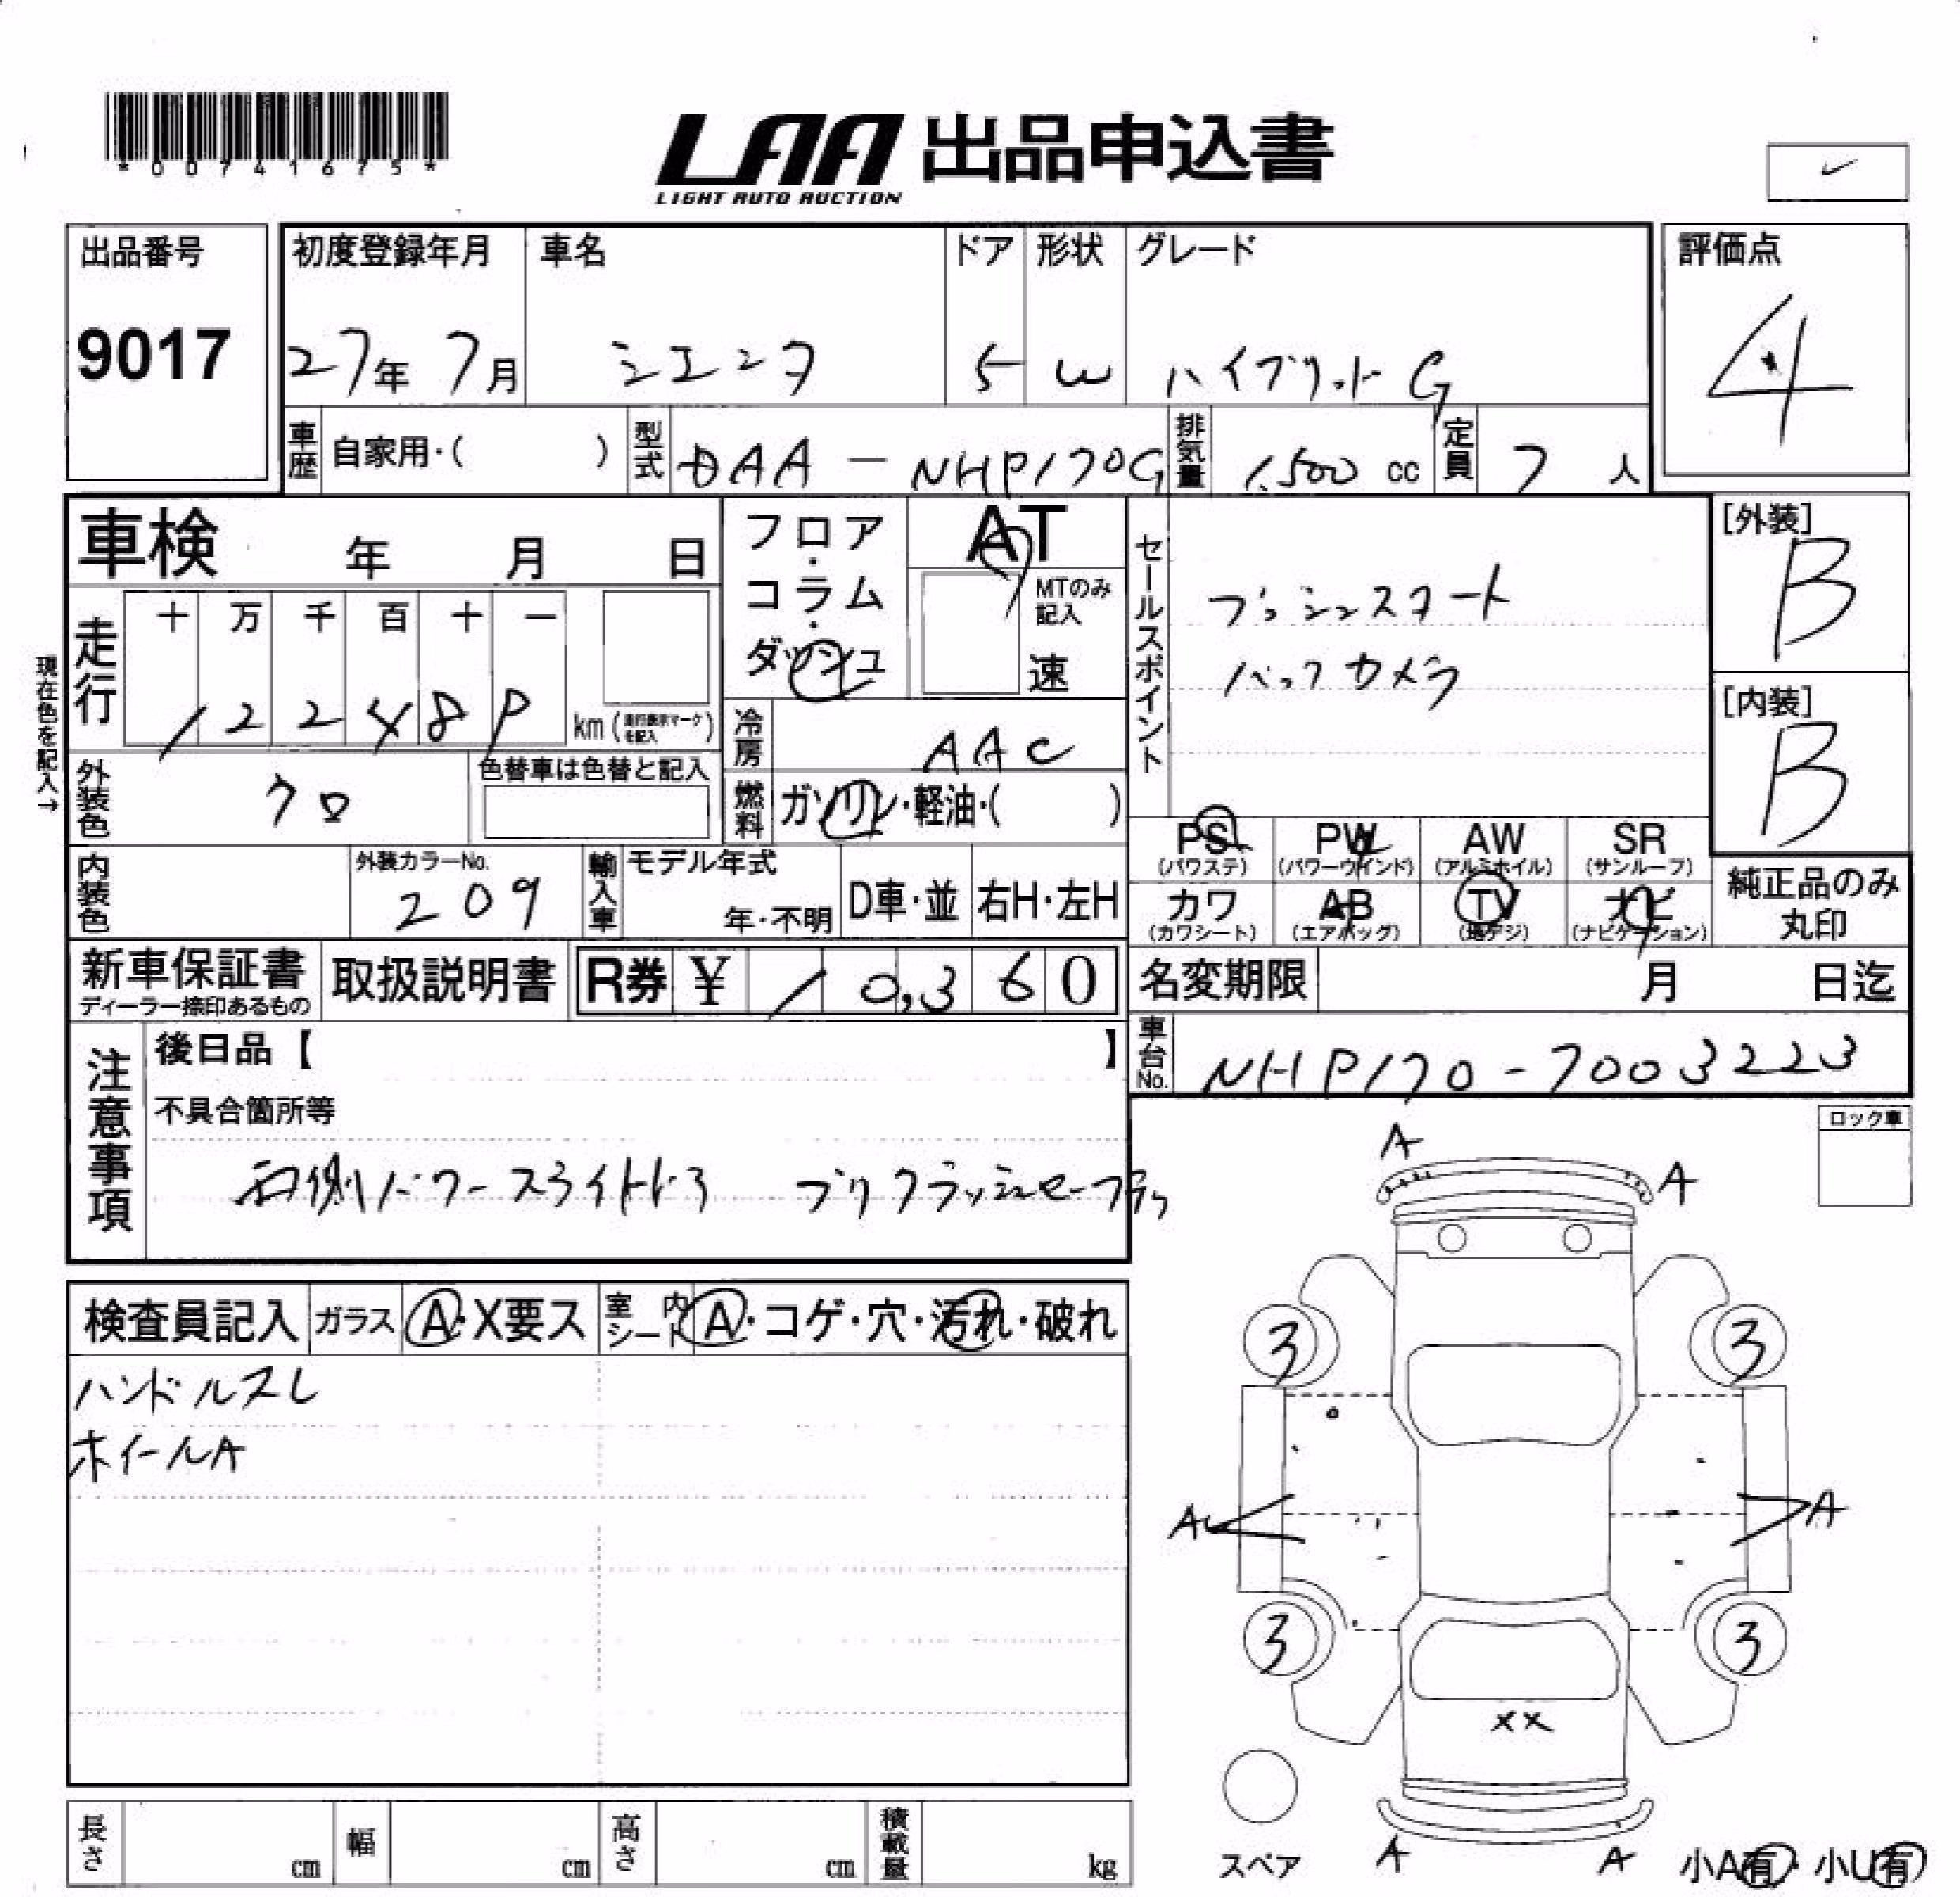 *00741675*
LAA 出品申込書
LIGHT AUTO AUCTION
出品番号
9017
初度登録年月
27年 7月
車名
シエンタ
ドア
5
形状
W
グレード
ハイブリット G
評価点
4
車歴 自家用・( )
型式 DAA-NHP170G
排気量 1,500 cc
定員 7 人
車検 年 月 日
フロア・コラム・ダッシュ
AT
MTのみ記入
速
セールスポイント
プッシュスタート
バックカメラ
[外装]
B
[内装]
B
現在色を記入→
走行
十 万 千 百 十 一
km (走行表示マークを記入)
冷房 AAC
外装色 クロ
色替車は色替と記入
燃料 ガソリン・軽油・( )
PS (パワステ)
PW (パワーウインド)
AW (アルミホイル)
SR (サンルーフ)
カワ (カワシート)
AB (エアバッグ)
TV (地デジ)
ナビ (ナビゲーション)
純正品のみ
丸印
内装色
外装カラーNo.
209
輸入車
モデル年式
年・不明
D車・並
右H・左H
新車保証書
ディーラー捺印あるもの
取扱説明書
R券 ¥ 10,360
名変期限 月 日迄
車台No. NHP170-7003223
注意事項
後日品【 】
不具合箇所等
両側パワースライドドア プリクラッシュセーフティ
ロック車
検査員記入
ガラス A・X要ス
室内シート A・コゲ・穴・汚れ・破れ
ハンドルスレ
ホイールA
A
A
3
3
A
A
3
3
XX
A
A
スペア
小A有・小U有
長さ cm
幅 cm
高さ cm
積載量 kg